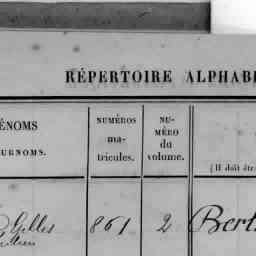 RÉPERTOIRE ALPHABÉ
ÉNOMS
URNOMS.
NUMÉROS
ma-
tricules.
NU-
MÉRO
du
volume.
(Il doit êtr
Gilles
861
2
Bert